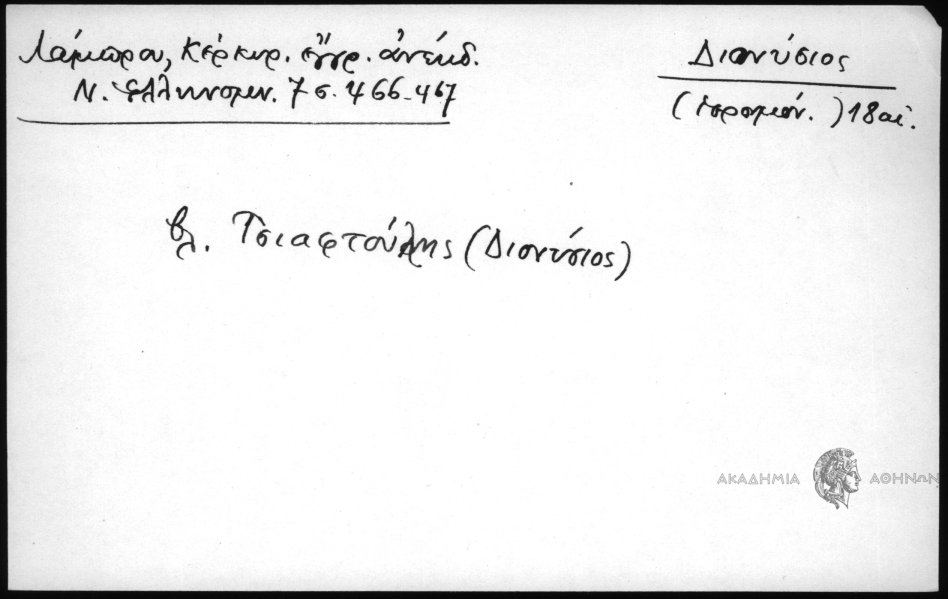 Λάμπρου, Κερκυρ. ἔγγρ. ἀνέκδ.
Ν. Ἑλληνομν. 7 σ. 466-467
Διονύσιος
(ἱερομόν.) 18 αἰ.
βλ. Τσιαφτούλης (Διονύσιος)
ΑΚΑΔΗΜΙΑ ΑΘΗΝΩΝ